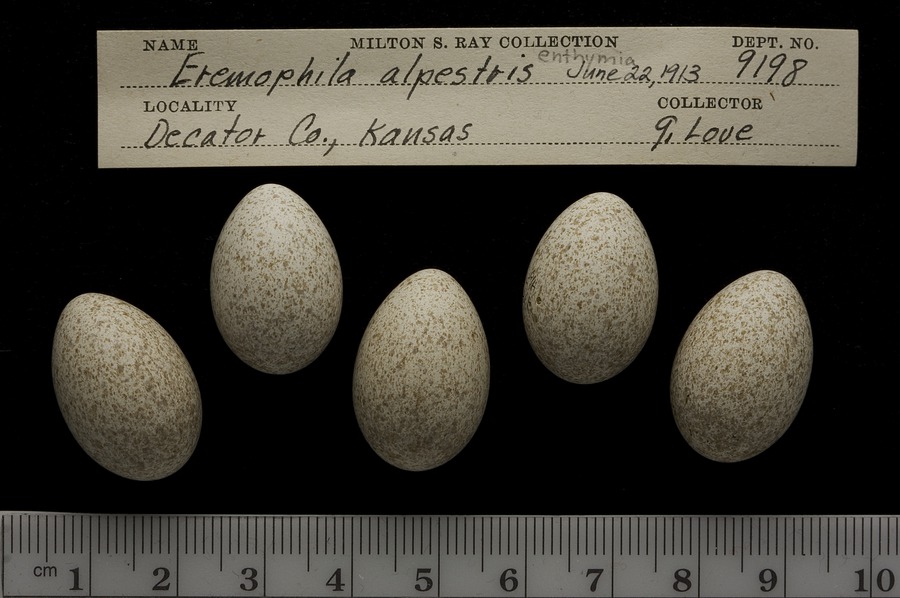 NAME MILTON S. RAY COLLECTION DEPT. NO.
Eremophila alpestris enthymia June 22, 1913 9198
LOCALITY COLLECTOR
Decator Co., Kansas G. Love
cm 1 2 3 4 5 6 7 8 9 10